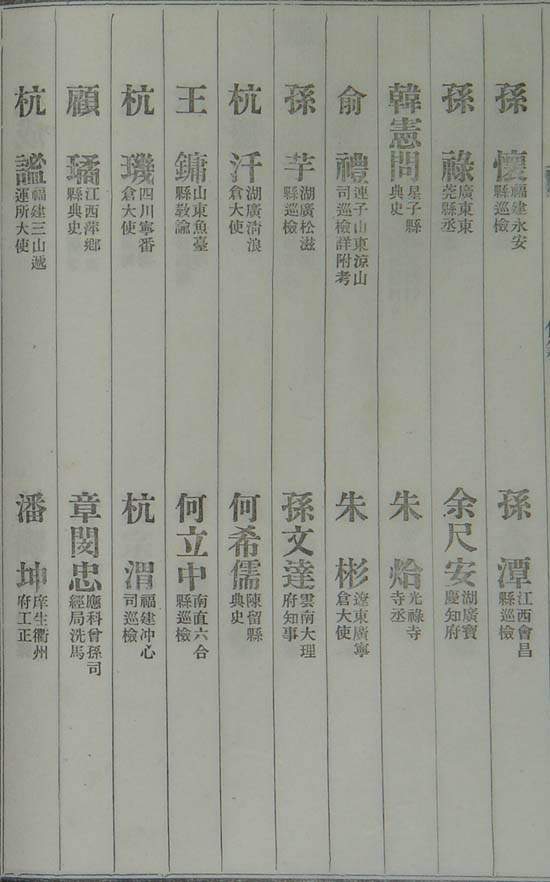 孫懷福建永安縣巡檢 孫潭江西會昌縣巡檢
孫祿廣東東莞縣丞 余尺安湖廣寶慶知府
韓憲問星子縣典史 朱炲光祿寺寺丞
俞禮連子山東涼山司巡檢詳附考 朱彬遼東廣寧倉大使
孫芋湖廣松滋縣巡檢 孫文達雲南大理府知事
杭汗湖廣清浪倉大使 何希儒陳留縣典史
王鏞山東魚臺縣敎諭 何立中南直六合縣巡檢
杭璣四川寧番倉大使 杭渭福建冲心司巡檢
顧璚江西萍鄉縣典史 章閔忠應科曾孫司經局洗馬
杭謐福建三山遞運所大使 潘坤庠生衢州府工正